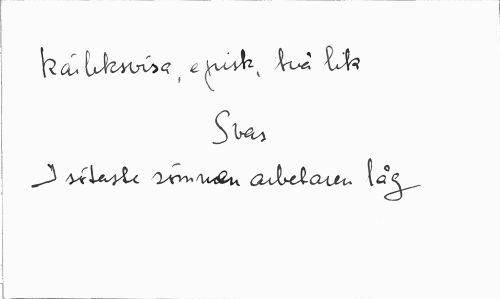 Kärleksvisa, episk, två lik
Svar
I sötaste sömnen arbetaren låg